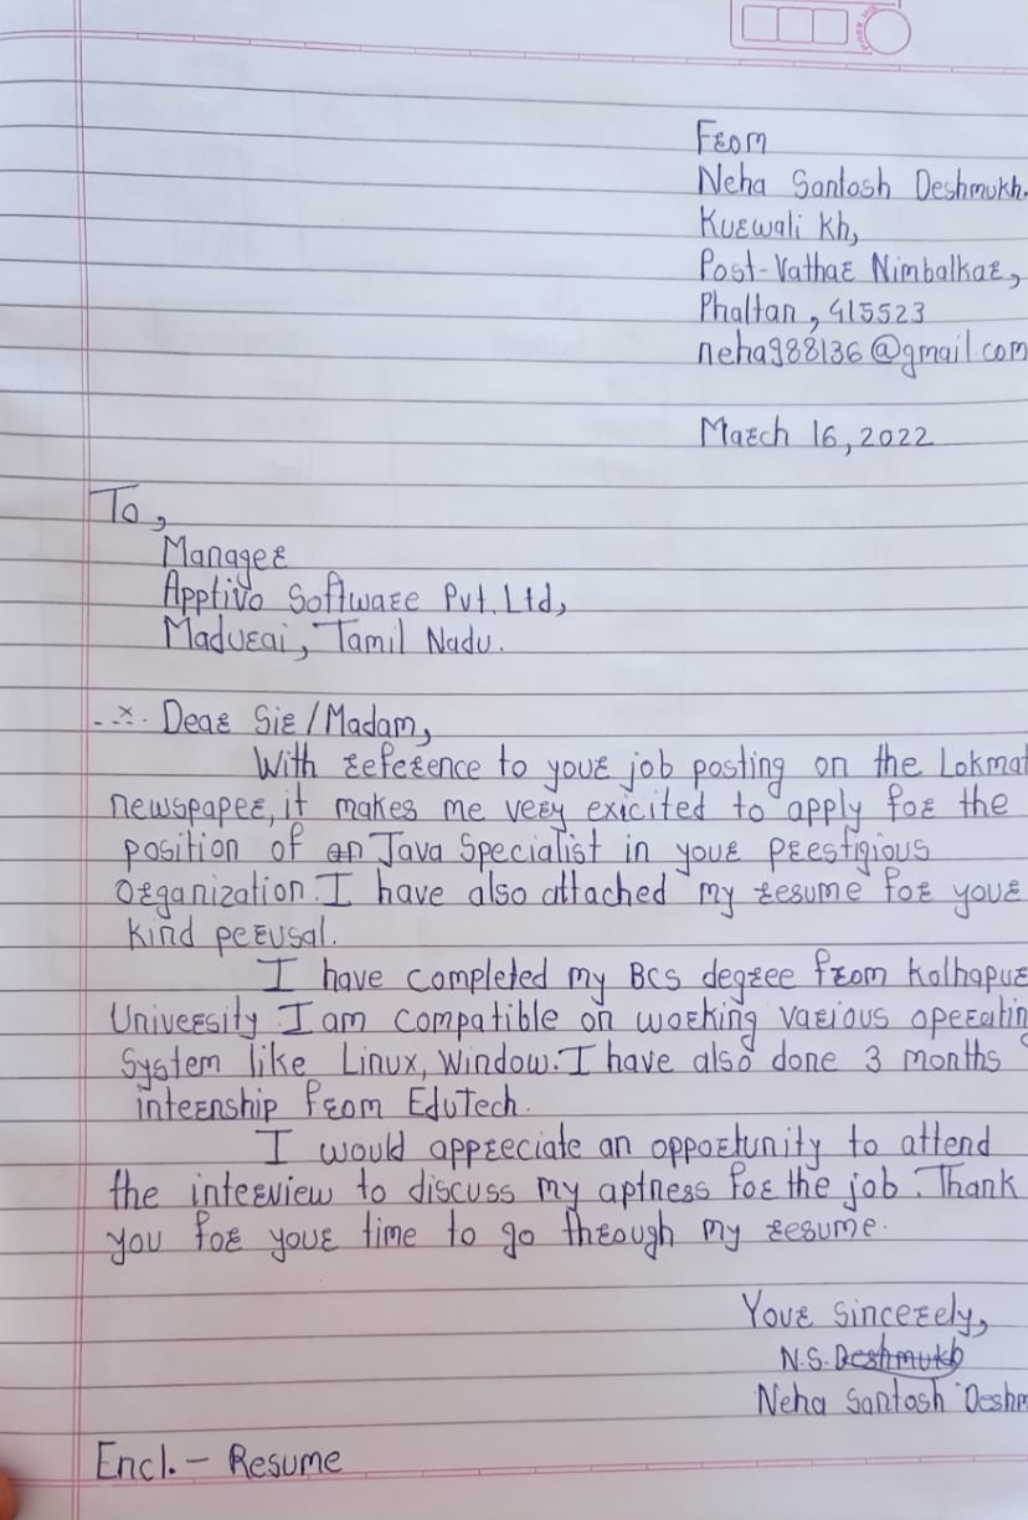 From
Neha Santosh Deshmukh.
Kurwali Kh,
Post-Vathar Nimbalkar,
Phaltan, 415523
neha988136@gmail.com
March 16, 2022
To,
Manager
Apptivo Software Pvt. Ltd,
Madurai, Tamil Nadu.
Dear Sir/Madam,
With reference to your job posting on the Lokmat
newspaper, it makes me very exicited to apply for the
position of an Java Specialist in your prestigious
Organization. I have also attached my resume for your
kind perusal.
I have completed my BCS degree from Kolhapur
University. I am compatible on working various operatin
System like Linux, Window. I have also done 3 months
internship from EduTech.
I would appreciate an opportunity to attend
the interview to discuss my aptness for the job. Thank
you for your time to go through my resume.
Your sincerely,
N.S. Deshmukh
Neha Santosh Deshm
Encl. - Resume